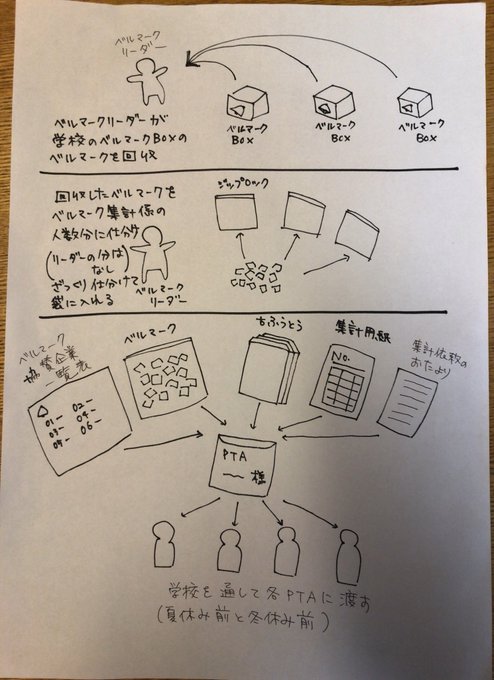 ベルマーク
リーダー
ベルマークリーダーが
学校のベルマークBOXの
ベルマークを回収
ベルマーク
BOX
ベルマーク
BOX
ベルマーク
BOX
回収したベルマークを
ベルマーク集計係の
人数分に仕分け
(リーダーの分は
なし)
ざっくり仕分けて
袋に入れる
ベルマーク
リーダー
ジップロック
ベルマーク
協賛企業
一覧表
01ー 02ー
03ー 04ー
05ー 06ー
ベルマーク
ちふうとう
集計用紙
No.
集計依頼の
おたより
PTA
様
学校を通して各PTAに渡す
(夏休み前と冬休み前)